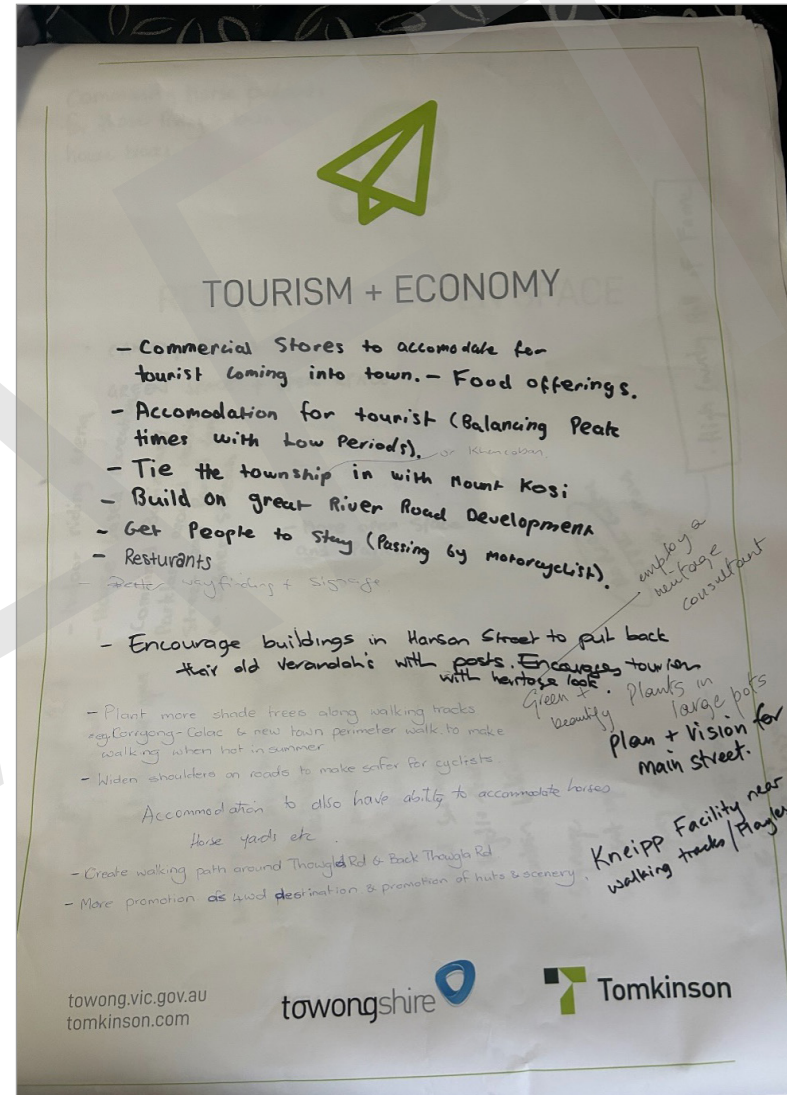 TOURISM + ECONOMY
- Commercial Stores to accomodate for
tourist coming into town. - Food offerings.
- Accomodation for tourist (Balancing Peak
times with Low Periods).
or Khancoban
- Tie the township in with Mount Kosi
- Build on great River Road Development
- Get People to Stay (Passing by Motorcyclist).
- Resturants
- Better wayfinding + Signage
employ a
heritage
consultant
- Encourage buildings in Hanson Street to put back
their old verandah's with posts. Encourages tourism
with heritage look.
Green +
beautify
Plants in
large pots
- Plant more shade trees along walking tracks
eg. Corryong-Colac & new town perimeter walk to make
walking when hot in summer
Plan + Vision for
Main street.
- Widen shoulders on roads to make safer for cyclists.
Accommodation to also have ability to accommodate horses
Horse yards etc.
- Create walking path around Thowgla Rd & Back Thowgla Rd
- More promotion as 4wd destination & promotion of huts & scenery.
Kneipp Facility near
walking tracks/
towong.vic.gov.au
tomkinson.com
towongshire
Tomkinson